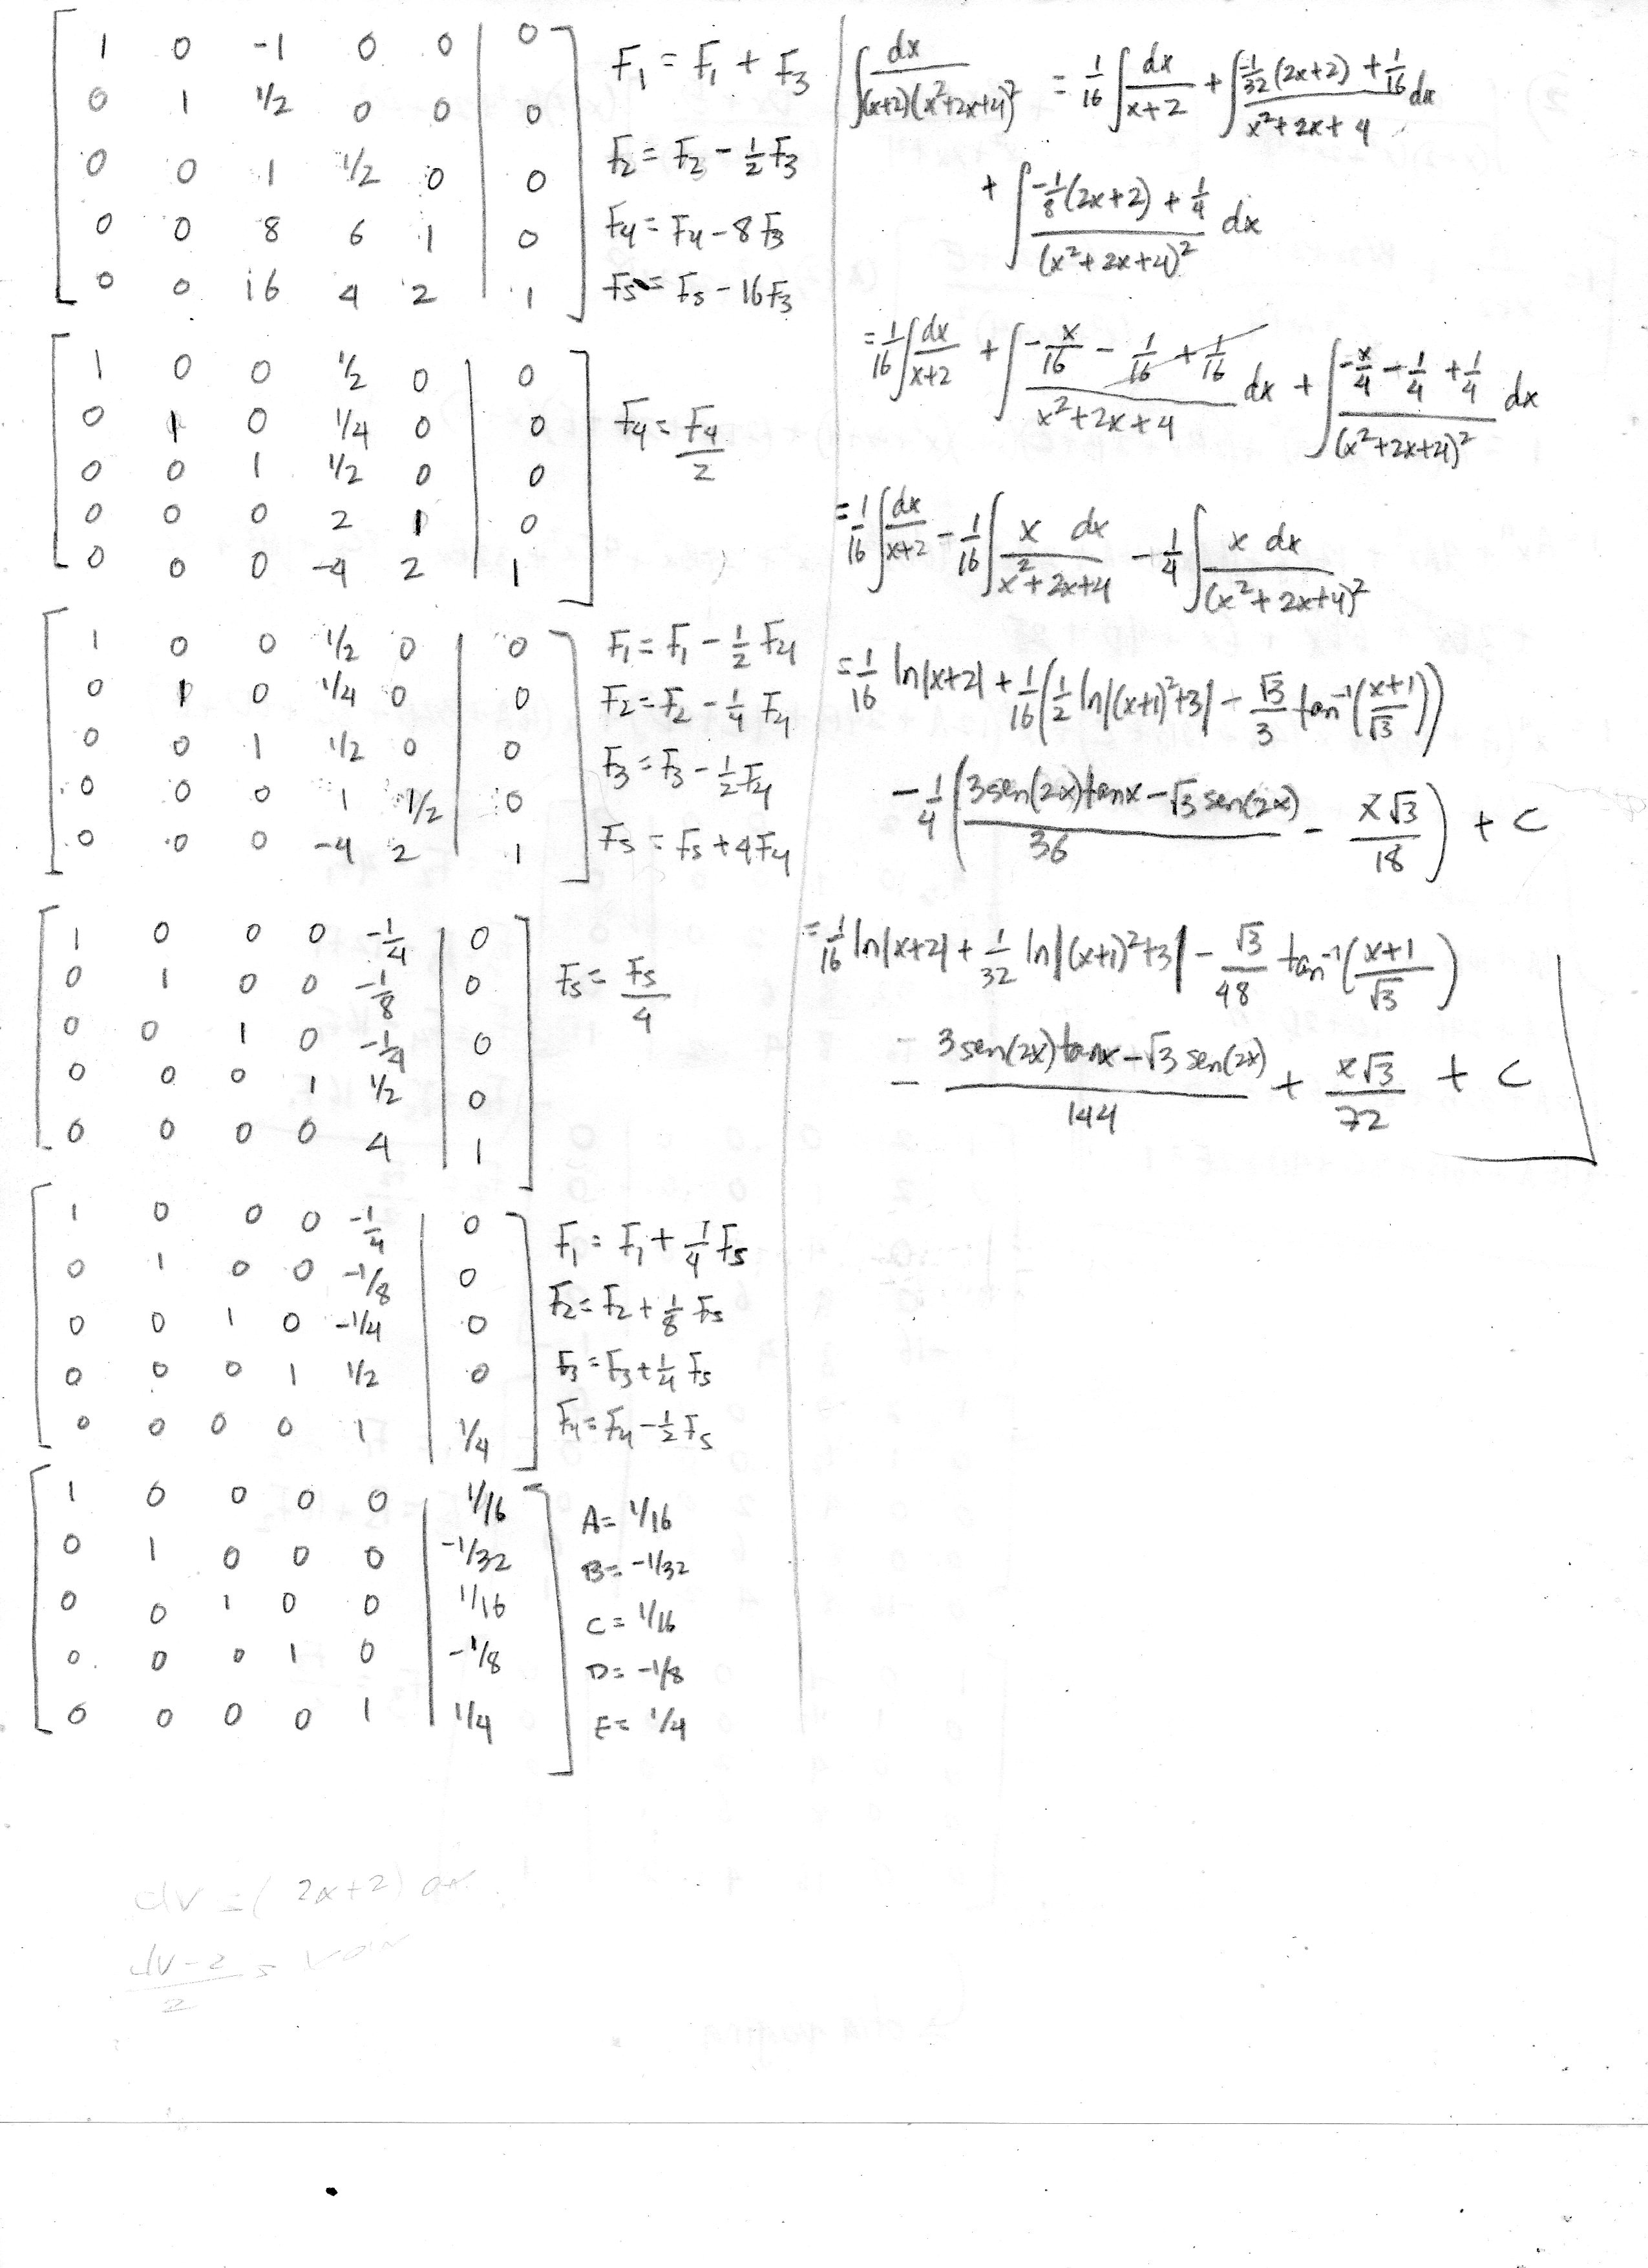 1 0 -1 0 0 | 0
0 1 1/2 0 0 | 0
0 0 1 1/2 0 | 0
0 0 8 6 1 | 0
0 0 16 4 2 | 1
F₁ = F₁ + F₃
F₂ = F₂ - 1/2 F₃
F₄ = F₄ - 8F₃
F₅ = F₅ - 16F₃
1 0 0 1/2 0 | 0
0 1 0 1/4 0 | 0
0 0 1 1/2 0 | 0
0 0 0 2 1 | 0
0 0 0 -4 2 | 1
F₄ = F₄/2
1 0 0 1/2 0 | 0
0 1 0 1/4 0 | 0
0 0 1 1/2 0 | 0
0 0 0 1 1/2 | 0
0 0 0 -4 2 | 1
F₁ = F₁ - 1/2 F₄
F₂ = F₂ - 1/4 F₄
F₃ = F₃ - 1/2 F₄
F₅ = F₅ + 4F₄
1 0 0 0 -1/4 | 0
0 1 0 0 -1/8 | 0
0 0 1 0 -1/4 | 0
0 0 0 1 1/2 | 0
0 0 0 0 4 | 1
F₅ = F₅/4
1 0 0 0 -1/4 | 0
0 1 0 0 -1/8 | 0
0 0 1 0 -1/4 | 0
0 0 0 1 1/2 | 0
0 0 0 0 1 | 1/4
F₁ = F₁ + 1/4 F₅
F₂ = F₂ + 1/8 F₅
F₃ = F₃ + 1/4 F₅
F₄ = F₄ - 1/2 F₅
1 0 0 0 0 | 1/16
0 1 0 0 0 | -1/32
0 0 1 0 0 | 1/16
0 0 0 1 0 | -1/8
0 0 0 0 1 | 1/4
A = 1/16
B = -1/32
C = 1/16
D = -1/8
E = 1/4
dv = (2x+2) dx
dv-2/2 =
∫ dx/(x+2)(x²+2x+4)² = 1/16 ∫ dx/x+2 + ∫ -1/32 (2x+2) + 1/16/x²+2x+4 dx
+ ∫ -1/8 (2x+2) + 1/4/(x²+2x+4)² dx
= 1/16 ∫ dx/x+2 + ∫ -x/16 - 1/16 + 1/16/x²+2x+4 dx + ∫ -x/4 - 1/4 + 1/4/(x²+2x+4)² dx
= 1/16 ∫ dx/x+2 - 1/16 ∫ x dx/x²+2x+4 - 1/4 ∫ x dx/(x²+2x+4)²
= 1/16 ln|x+2| + 1/16 (1/2 ln|(x+1)²+3| - √3/3 tan⁻¹(x+1/√3))
- 1/4 (3sen(2x)tanx - √3 sen(2x)/36 - x√3/18) + C
= 1/16 ln|x+2| + 1/32 ln|(x+1)²+3| - √3/48 tan⁻¹(x+1/√3)
- 3sen(2x)tanx - √3 sen(2x)/144 + x√3/72 + C